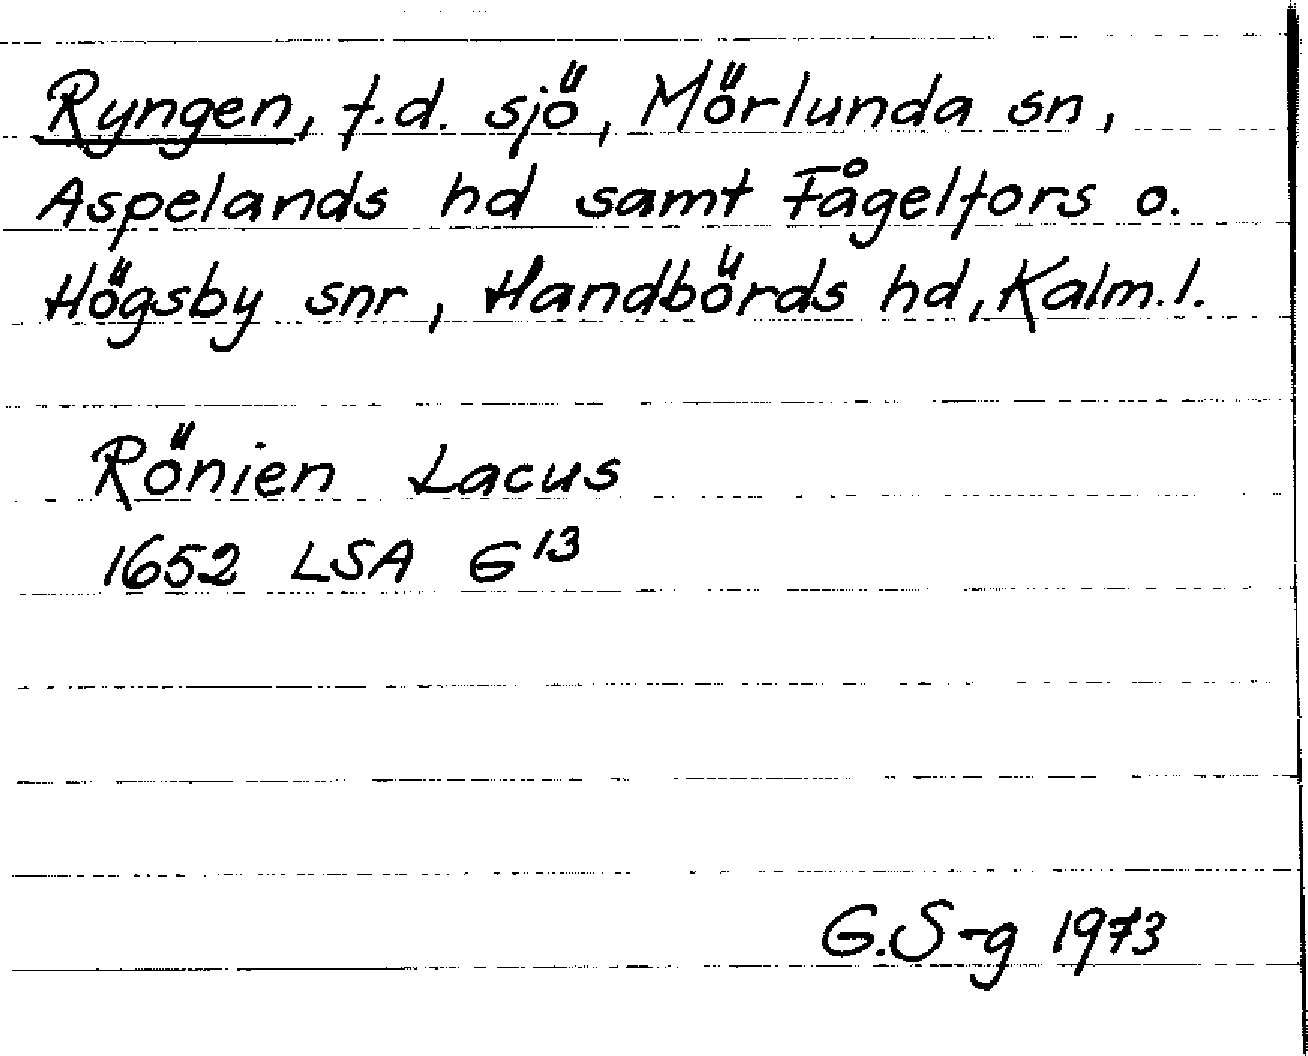 Ryngen, f.d. sjö, Mörlunda sn,
Aspelands hd samt Fågelfors o.
Högsby snr, Handbörds hd, Kalm. l.
Rönien Lacus
1652 LSA G¹³
G.S-g 1973